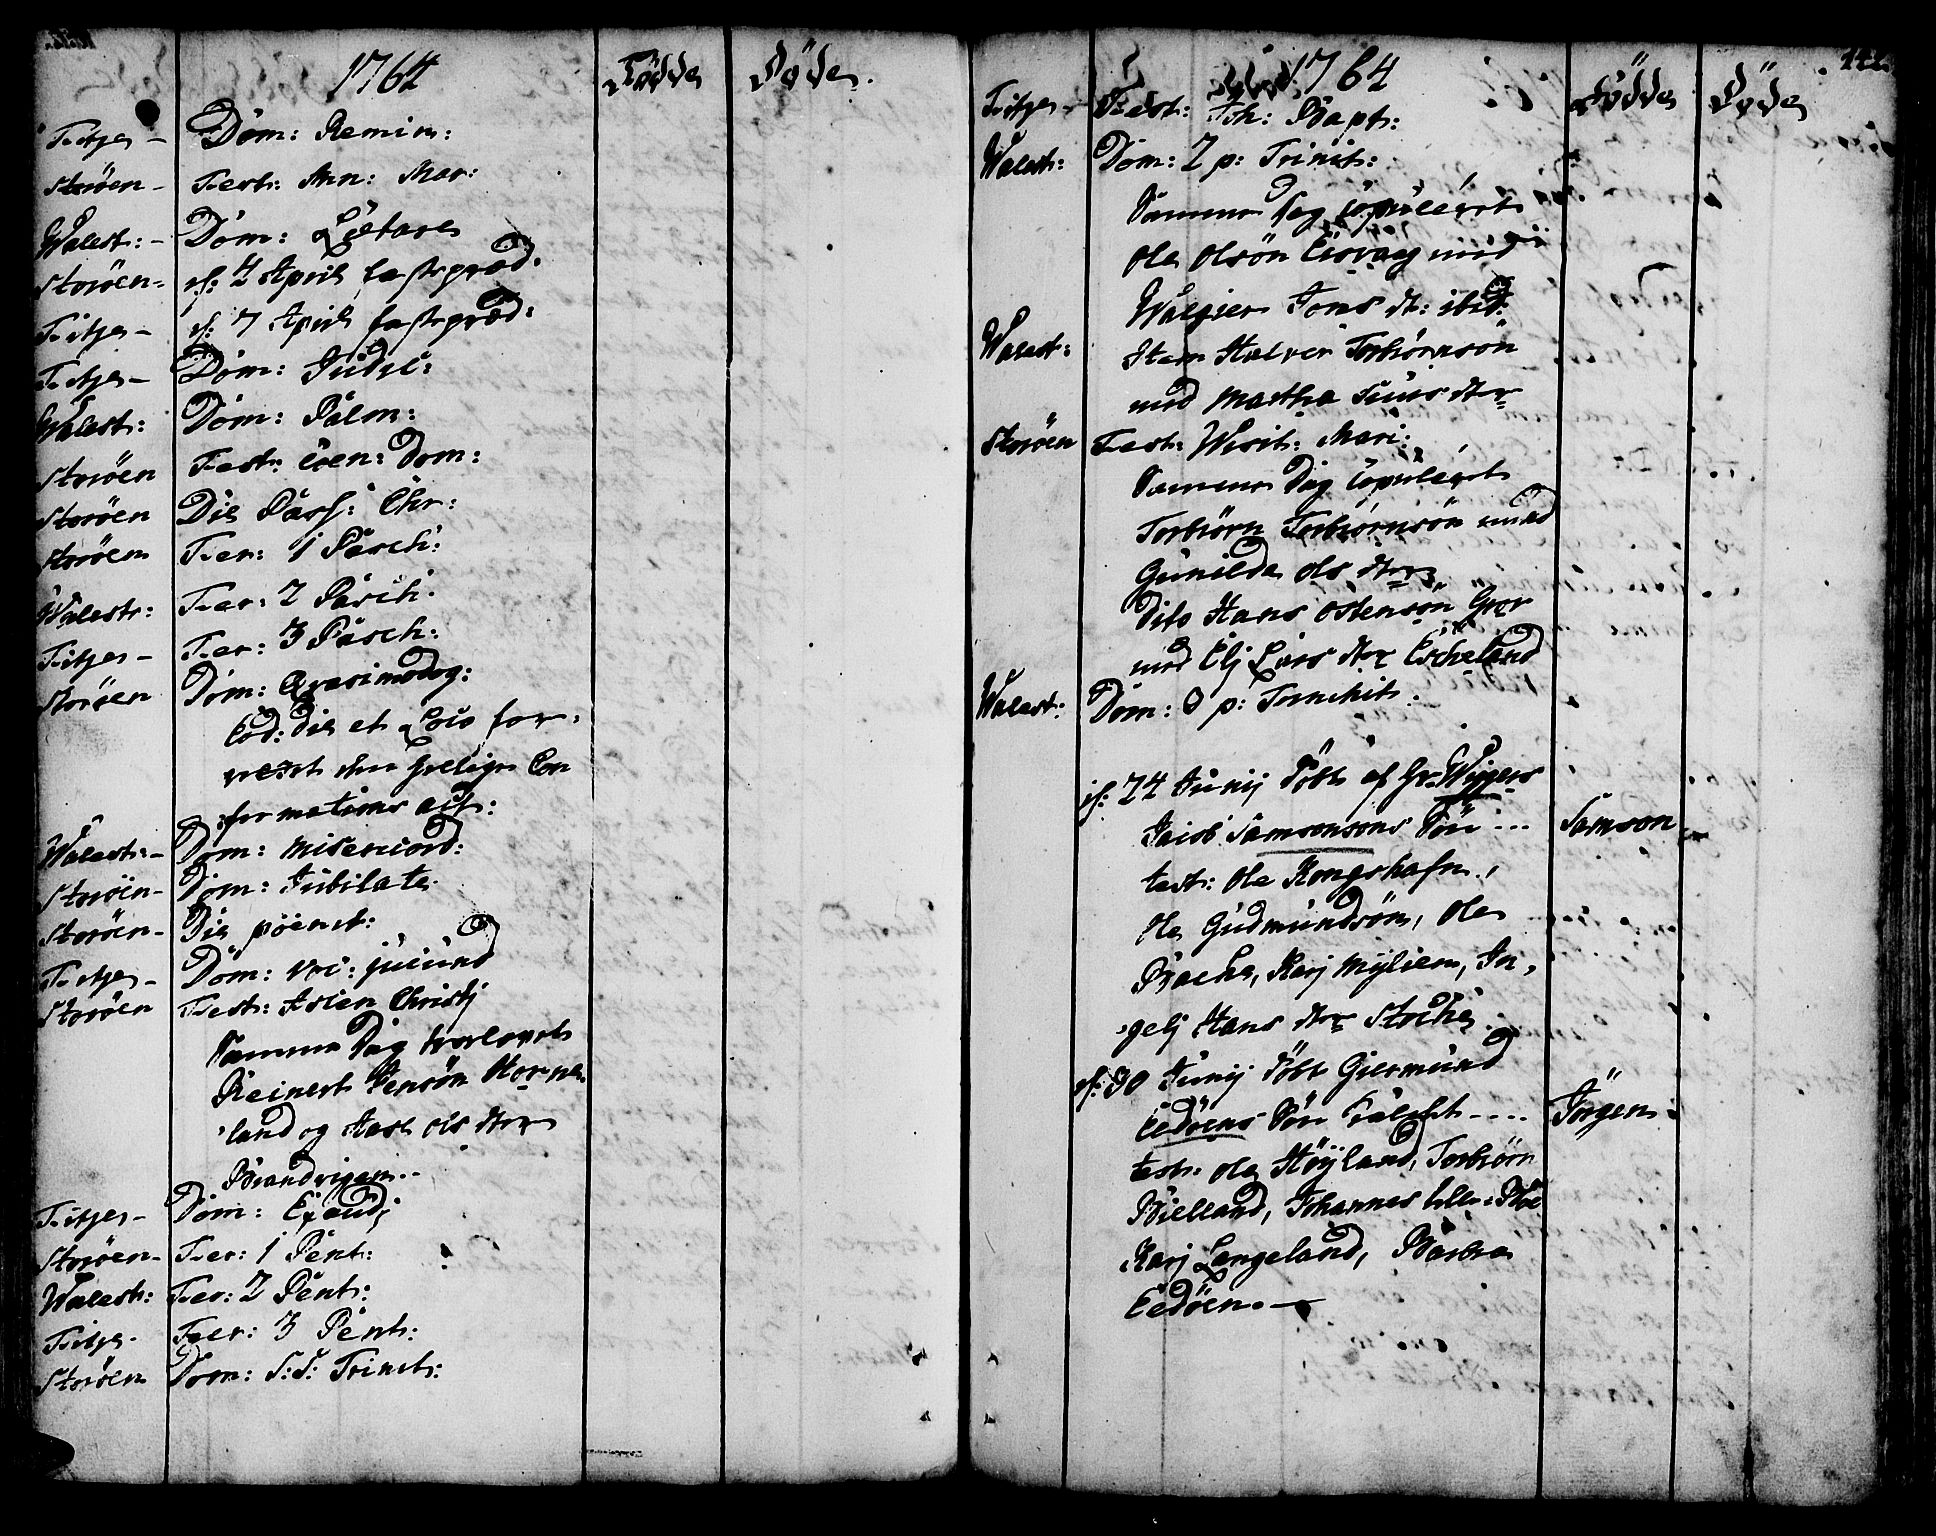 1764 Födde Döde.
Fitjes - Dom: Remin:
Storöen - Fest: Ann: Mar:
Walest: - Dom: Lætare
Storöen - d: 4 April fastepræd:
Fitjes - d: 7 April fastepræd:
Fitjes - Dom: Judic:
Walest: Dom: Palm:
Storöen Fest: Coen: Dom:
Storöen Die Pass: Chr:
Storöen Fer: 1 Pasch:
Walestr: Fer: 2 Pasch:
Fitjes - Fer: 3 Pasch:
Storöen Dom: Qvasimodog:
Eod: Die et Loco for
rett den hellige Con
formations act:
Walestr: - Dom: Misericord:
Storöen - Dom: Jubilate
Storöen - Die poenit:
Fitjes - Dom: voc: jucund
Storöen Fest: Ascen Christj
Samme Dag trolovet
Reinert Jensön Horne
land og Aase Ols dtr
Brandvigen..
Fitjes - Dom: Exaudj
Storöen - Fer: 1 Pent:
Walestr: Fer: 2 Pent:
Fitjes - Fer: 3 Pent:
Storöen Dom: S:S: Trinit:
1764 Födde Döde
Fitjes - Fest: Joh: Bapt:
Walestr: Dom: 2 p: Trinit:
Samme Dag copuleret
Ole Olsön Eisvaag med
Walgier Jons dt: ibid:
Walest: Item Halver Torbiörnsön
med Martha Siurs dtr
Storöen Fest: Visit: Mari:
Samme Dag copuleret
Torbiörn Torbiörnsön med
Gunilda Ols dtr
dito Hans Ostensön
med Elj Lars dtr Escheland
Walest: Dom: 3 p: Trinit.
d: 24 Junij Döbt af Hr: Wigers
Jacob Samsonsons Sön --- Samson
test: Ole Kongshafn,
Ole Gudmundsön, Ole
Bache, Karj Myliem, In,
gelj Hans dtr Stoche
d: 30 Junij Döbt Giermund
Eedöens Sön kaldt ---- Jörgen
test: Ole Höyland, Torbiörn
Bielland, Johannes
Karj Langeland, Barbra
Eedöen. -